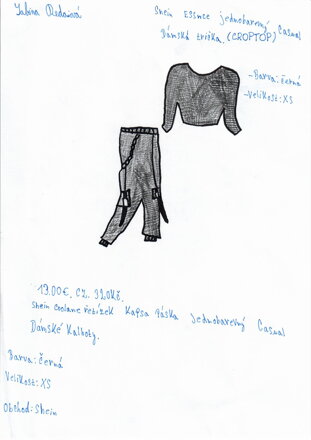 Sabina
Shein Essnce jednobarevný Casual
Dámská trička. (CROPTOP)
-Barva: černá
-Velikost: XS
19.00€. CZ. 320Kč.
Shein Coolane Řetízek Kapsa Páska Jednobarevný Casual
Dámské Kalhoty.
Barva: černá
Velikost: XS
Obchod: Shein